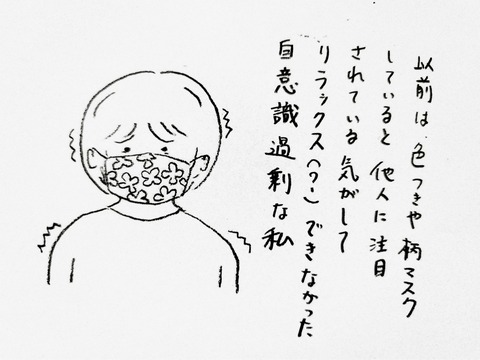 以前は、色つきや柄マスク
していると他人に注目
されている気がして
リラックス(?)できなかった
自意識過剰な私